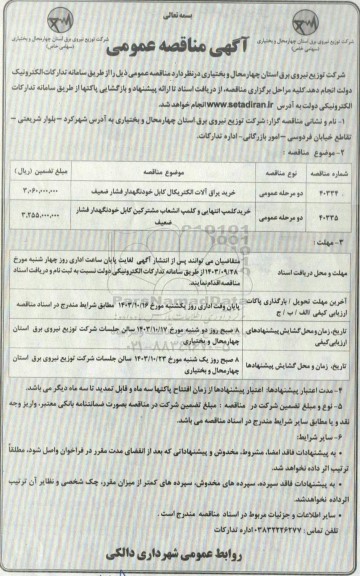 بسمه تعالی
شرکت توزیع نیروی برق استان چهارمحال و بختیاری
(سهامی خاص)
آگهی مناقصه عمومی
شرکت توزیع نیروی برق استان چهارمحال و بختیاری
(سهامی خاص)
شرکت توزیع نیروی برق استان چهارمحال و بختیاری در نظر دارد مناقصه عمومی ذیل را از طریق سامانه تدارکات الکترونیک
دولت انجام دهد. کلیه مراحل برگزاری مناقصه، از دریافت اسناد تا ارائه پیشنهاد و بازگشایی پاکتها از طریق سامانه تدارکات
الکترونیکی دولت به آدرس www.setadiran.ir انجام خواهد شد.
۱- نام و نشانی مناقصه گزار: شرکت توزیع نیروی برق استان چهارمحال و بختیاری به آدرس شهرکرد – بلوار شریعتی –
تقاطع خیابان فردوسی – امور بازرگانی – اداره تدارکات.
۲- موضوع مناقصه:
شماره مناقصه نوع مناقصه موضوع مناقصه مبلغ تضمین (ریال)
۴۰۳۳۴ دو مرحله عمومی خرید یراق آلات الکتریکال کابل خودنگهدار فشار ضعیف ۳,۰۶۰,۰۰۰,۰۰۰
۴۰۳۳۵ دو مرحله عمومی خرید کلمپ انتهایی و کلمپ انشعاب مشترکین کابل خودنگهدار فشار ضعیف ۳,۲۵۵,۰۰۰,۰۰۰
۳- مهلت:
مهلت و محل دریافت اسناد متقاضیان می توانند پس از انتشار آگهی لغایت پایان ساعت اداری روز چهار شنبه مورخ
۱۴۰۳/۰۹/۲۸ از طریق سامانه تدارکات الکترونیکی دولت نسبت به ثبت نام و دریافت اسناد
مناقصه اقدام نمایند.
آخرین مهلت تحویل / بارگذاری پاکات ارزیابی کیفی / الف / ب / ج پایان وقت اداری روز یکشنبه مورخ ۱۴۰۳/۱۰/۱۶ مطابق شرایط مندرج در اسناد مناقصه
تاریخ، زمان و محل گشایش پیشنهادهای ارزیابی کیفی ۸ صبح روز دو شنبه مورخ ۱۴۰۳/۱۰/۱۷ سالن جلسات شرکت توزیع نیروی برق استان
چهارمحال و بختیاری
تاریخ، زمان و محل گشایش پیشنهادها ۸ صبح روز یک شنبه مورخ ۱۴۰۳/۱۰/۲۳ سالن جلسات شرکت توزیع نیروی برق استان
چهارمحال و بختیاری
۴- مدت اعتبار پیشنهادها: اعتبار پیشنهادها از زمان افتتاح پاکتها سه ماه و قابل تمدید تا سه ماه دیگر می باشد.
۵- نوع و مبلغ تضمین شرکت در مناقصه: مبلغ تضمین شرکت در مناقصه بصورت ضمانتنامه بانکی معتبر، واریز وجه
نقد و یا مطابق سایر شرایط مندرج در اسناد مناقصه می باشد.
۶- سایر شرایط:
• به پیشنهادات فاقد امضا، مشروط، مخدوش و پیشنهاداتی که بعد از انقضای مدت مقرر در فراخوان واصل شود، مطلقاً
ترتیب اثر داده نخواهد شد.
• به پیشنهادات فاقد سپرده، سپرده های مخدوش، سپرده های کمتر از میزان مقرر، چک شخصی و نظایر آن ترتیب
اثر داده نخواهد شد.
• سایر اطلاعات و جزئیات مربوط در اسناد مناقصه مندرج است.
تلفن تماس: ۰۳۸۳۲۲۴۶۲۷۷ اداره تدارکات
روابط عمومی شهرداری دالکی